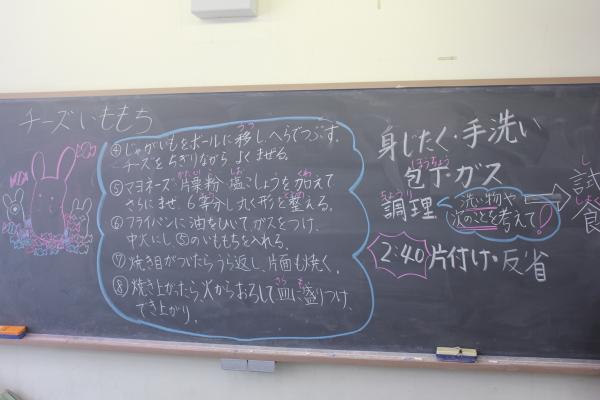 チーズいももち
④じゃがいもをボールに移し、へらでつぶす。
チーズをちぎりながらよくまぜる。
⑤マヨネーズ・片栗粉・塩こしょうを加えて
さらにまぜ6等分し丸く形を整える。
⑥フライパンに油をひいて、ガスをつけ、
中火にし⑤のいももちを入れる。
⑦焼き目がついたらうら返し、片面も焼く。
⑧焼き上がったら火からおろして皿に盛りつけ、
でき上がり。
身じたく・手洗い
ほうちょう
包丁・ガス
ちょうり
調理
洗い物や
次のことを考えて!
ししょく
試食
2:40 片付け・反省